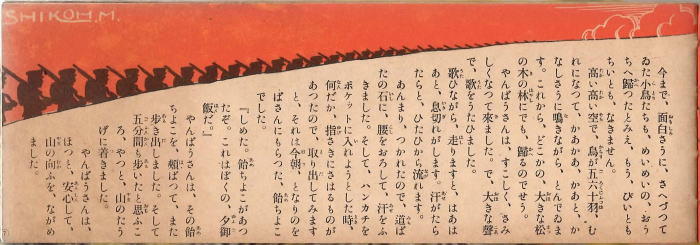 SHIKOH.M.
今まで、面白さうに、さへづつて
ゐた小鳥たちも、めいめいの、おう
ちへ歸つたとみえ、もう、ぴいとも
ちいとも、なきません。
高い高い空で、烏が五六十羽、む
れになつて、かあかあ、かあと、か
なしさうに鳴きながら、とんでゐま
す。これから、どこかの、大きな松
の木の林にでも、歸るのでせう。
やんばうさんは、すこし、さみ
しくなつて來ました。で、大きな聲
で、歌をうたひました。
歌ひながら、走りますと、はあは
あと、息切れがします。汗がたら
たらと、ひたひから流れます。
あんまり、つかれたので、道ば
たの石に、腰をおろして、汗をふ
きました。そして、ハンカチを
ポケットに入れようとした時、
何だか、指さきにさはるものが
あつたので、取り出してみます
と、それは今朝、となりのを
ばさんにもらつた、飴ちよこ
でした。
『しめた。飴ちよこがあつ
たぞ。これはぼくの、夕御
飯だ。』
やんばうさんは、その飴
ちよこを、頰ばつて、また
歩き出しました。そして
五分間も歩いたと思ふこ
ろ、やつと、山のたう
げに着きました。
やんばうさんは、
ほつと、安心して、
山の向ふを、ながめ
ました。